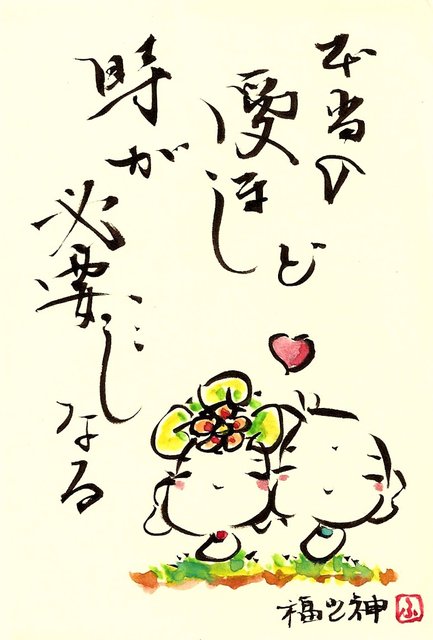 本当の
愛ほど
時が
必要に
なる
福之神
ふ